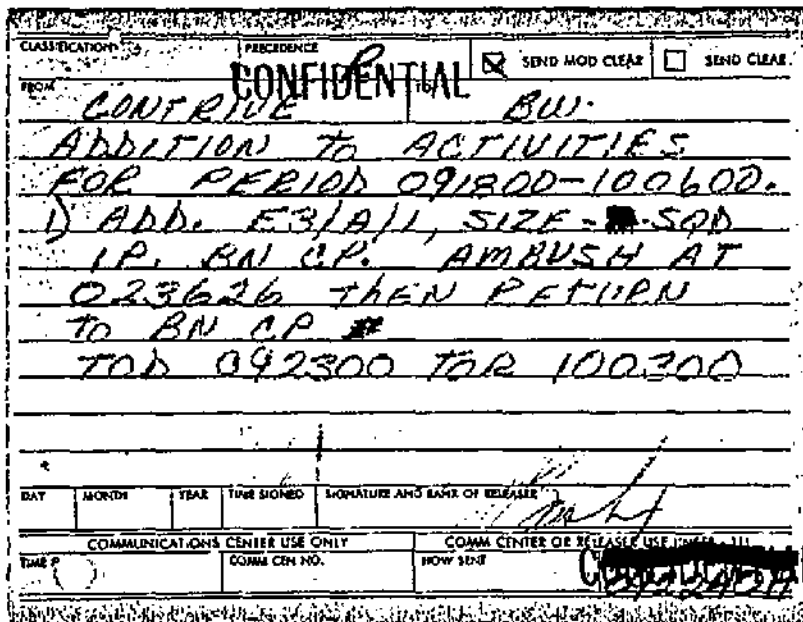 CLASSIFICATION PRECEDENCE SEND MOD CLEAR SEND CLEAR
P
CONFIDENTIAL
FROM CONTRIVE TO BW.
ADDITION TO ACTIVITIES
FOR PERIOD 091800-100600.
1) ADD. E3/A/1, SIZE = SQD
I.P. BN C.P. AMBUSH AT
023626 THEN RETURN
TO BN CP
TOD 092300 TOR 100300
DAY MONTH YEAR TIME SIGNED SIGNATURE AND RANK OF RELEASER
COMMUNICATIONS CENTER USE ONLY COMM CENTER OR RELEASER USE
TIME COMM CEN NO. HOW SENT